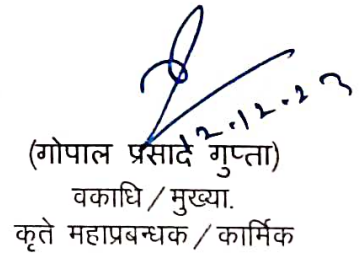 12.12.23
(गोपाल प्रसाद गुप्ता)
वकाधि / मुख्या.
कृते महाप्रबन्धक / कार्मिक